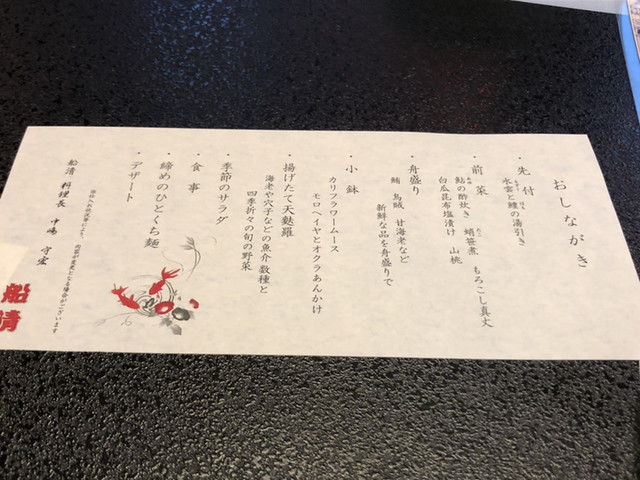 おしながき
・先付
水雲と鱧の湯引き
・前菜
鮎の酢炊き 蛸笹煮 もろこし真丈
白瓜昆布塩漬け 山桃
・舟盛り
鮪 烏賊 甘海老など
新鮮な品を舟盛りで
・小鉢
カリフラワームース
モロヘイヤとオクラあんかけ
・揚げたて天麩羅
海老や穴子などの魚介数種と
四季折々の旬の野菜
・季節のサラダ
・食事
・締めのひとくち麺
・デザート
船清 料理長 中嶋 守宏
仕入れの状況によって、内容が変更となる場合がございます
船清